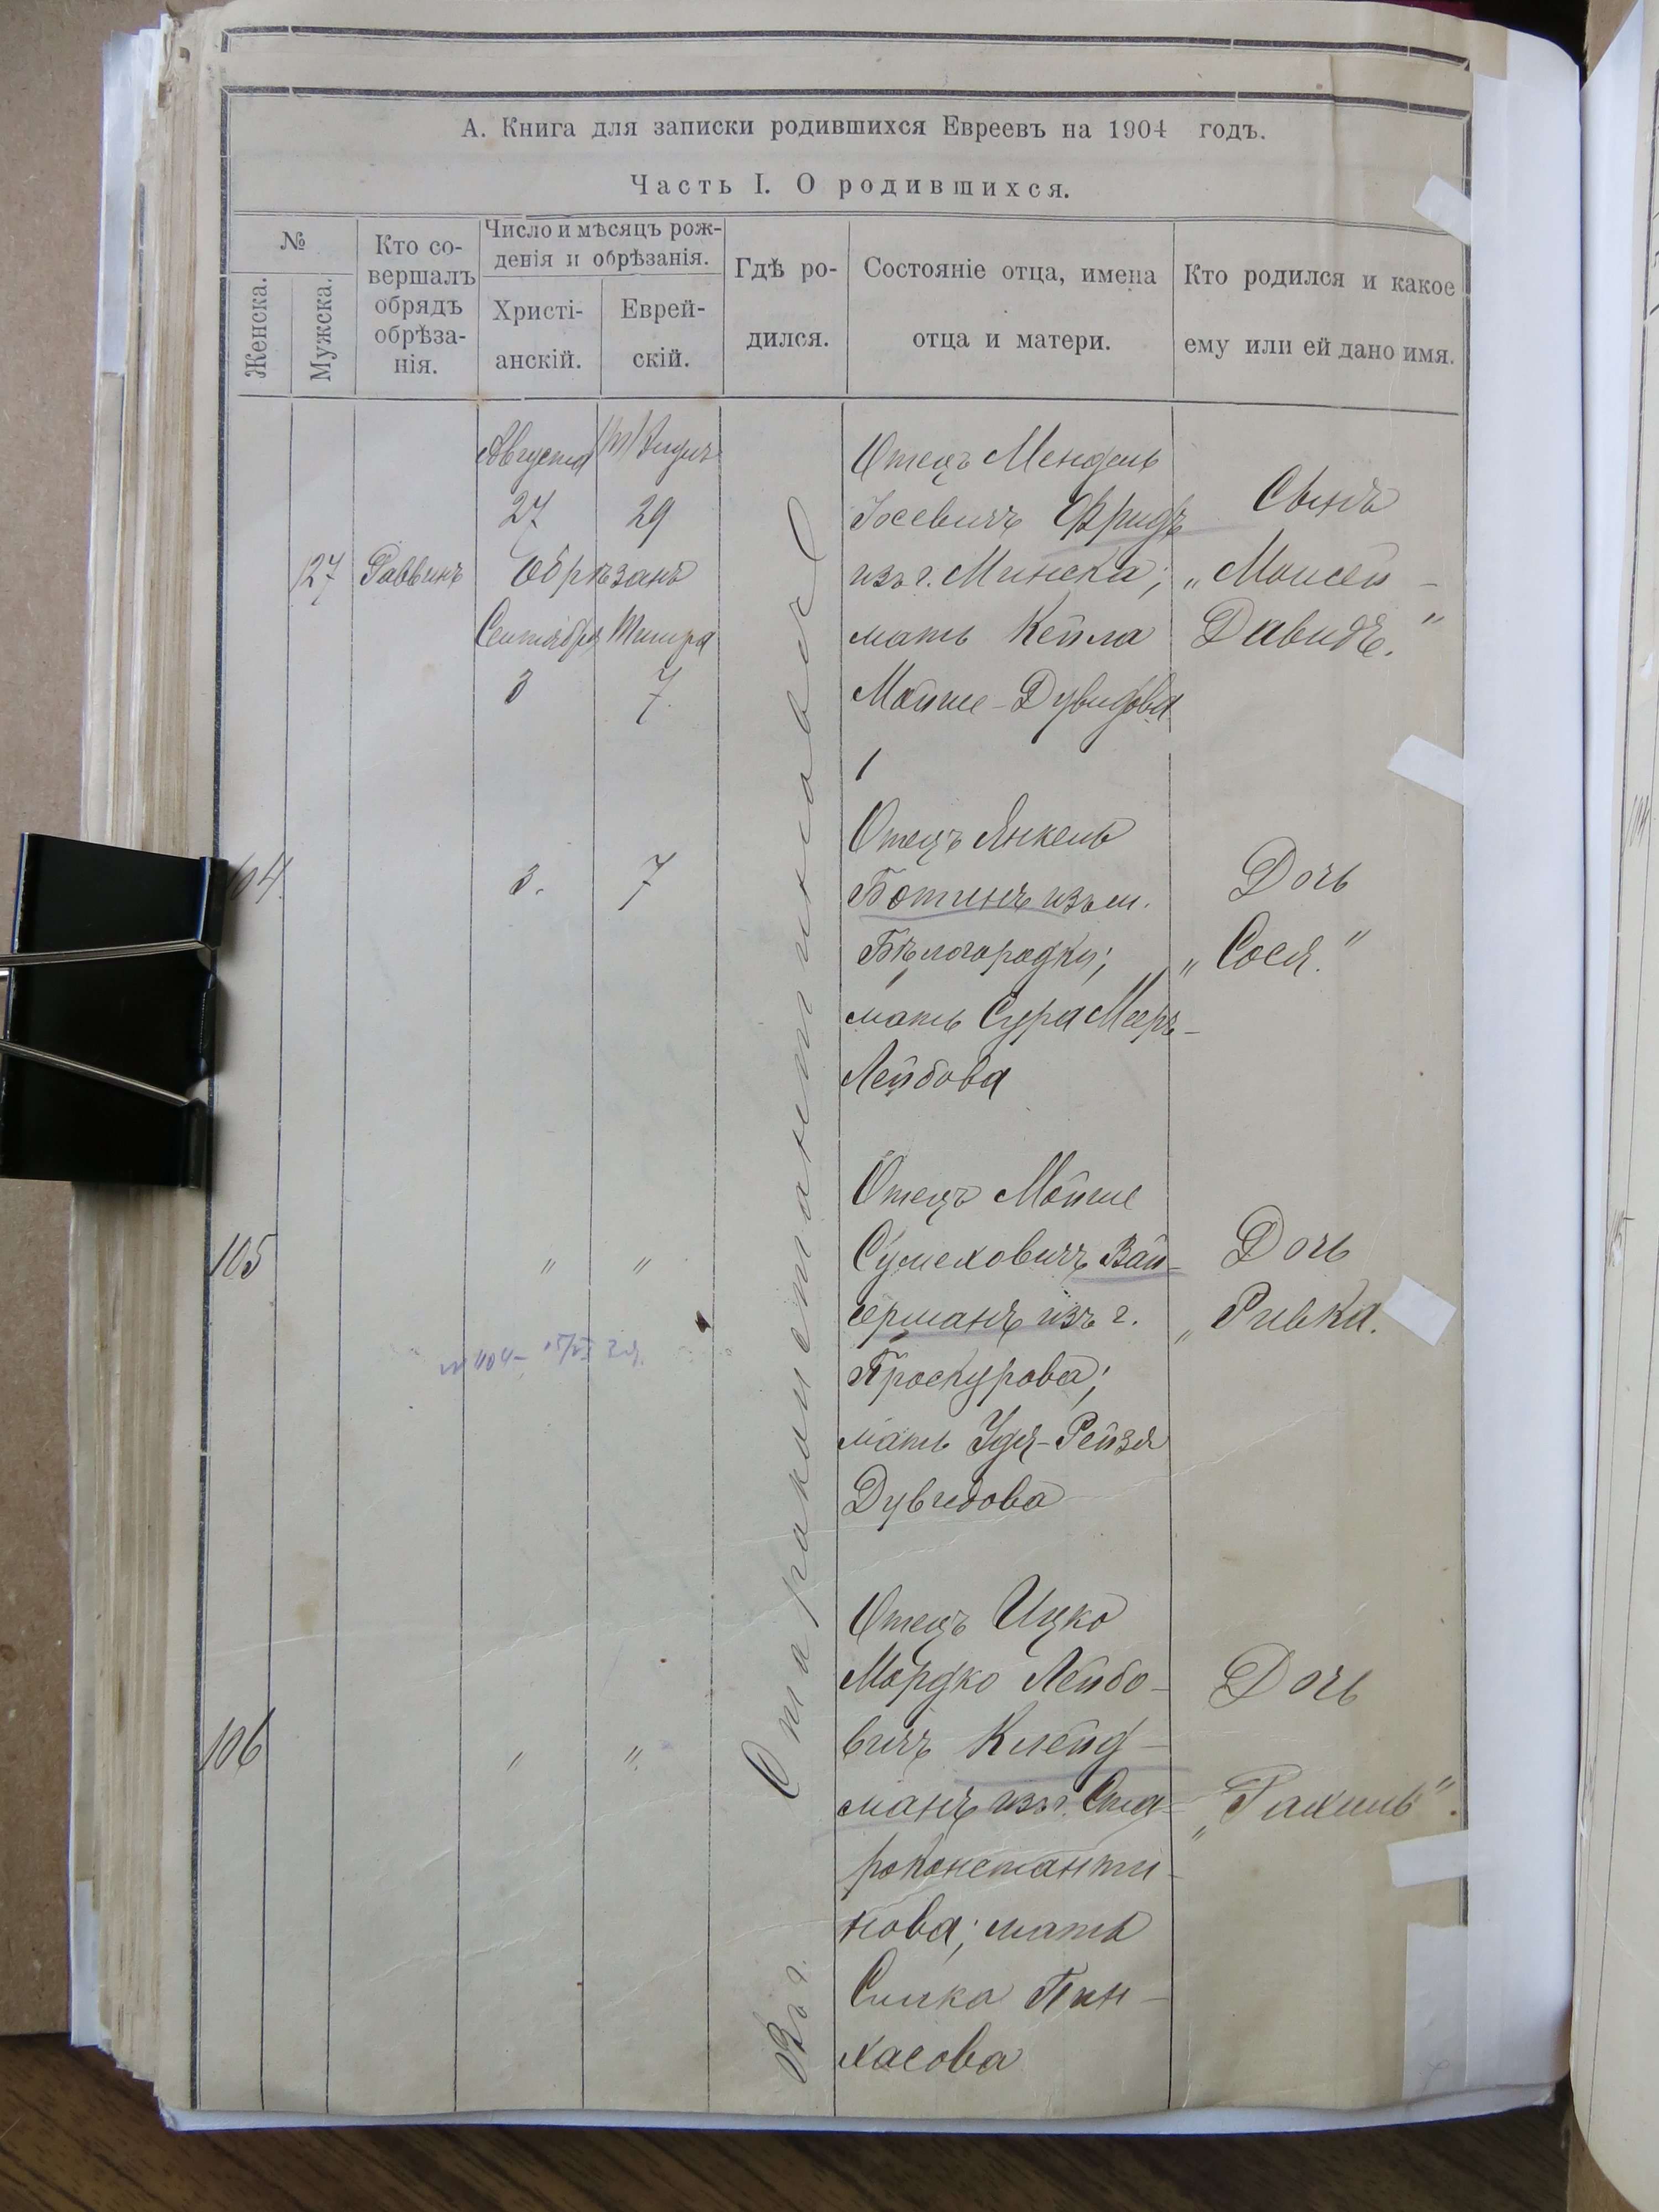 А. Книга для записки родившихся Евреевъ на 1904 годъ.
Часть I. О родившихся.
№
Женска.
Мужска.
Кто со-
вершалъ
обрядъ
обрѣза-
нія.
Число и мѣсяцъ рож-
денія и обрѣзанія.
Христі-
анскій.
Еврей-
скій.
Гдѣ ро-
дился.
Состояніе отца, имена
отца и матери.
Кто родился и какое
ему или ей дано имя.
127
Раввинъ
Августа
27
29
Обрѣзанъ
Сентября Тишра
3 7
Въ г. Староконстантиновѣ
Отецъ Мендель
Іосевичъ Фридъ
изъ г. Минска;
мать Кейла
Мойше-Дувидова
Сынъ
„Моисей-
Давидъ."
104
3. 7
Отецъ Янкель
Ботинъ изъ м.
Бѣлогородки;
мать Сура Меер-
Лейбова
Дочь
„Сося."
105
" "
Отецъ Мойше
Сумеховичъ Вай-
серманъ изъ г.
Проскурова;
мать Удя-Рейзя
Дувидова
Дочь
„Ривка.
106
" "
Отецъ Ицко
Мордко Лейбо-
вичъ Клейд-
манъ изъ г. Ста-
роконстанти-
нова; мать
Симка Пин-
хасова
Дочь
„Рахиль".